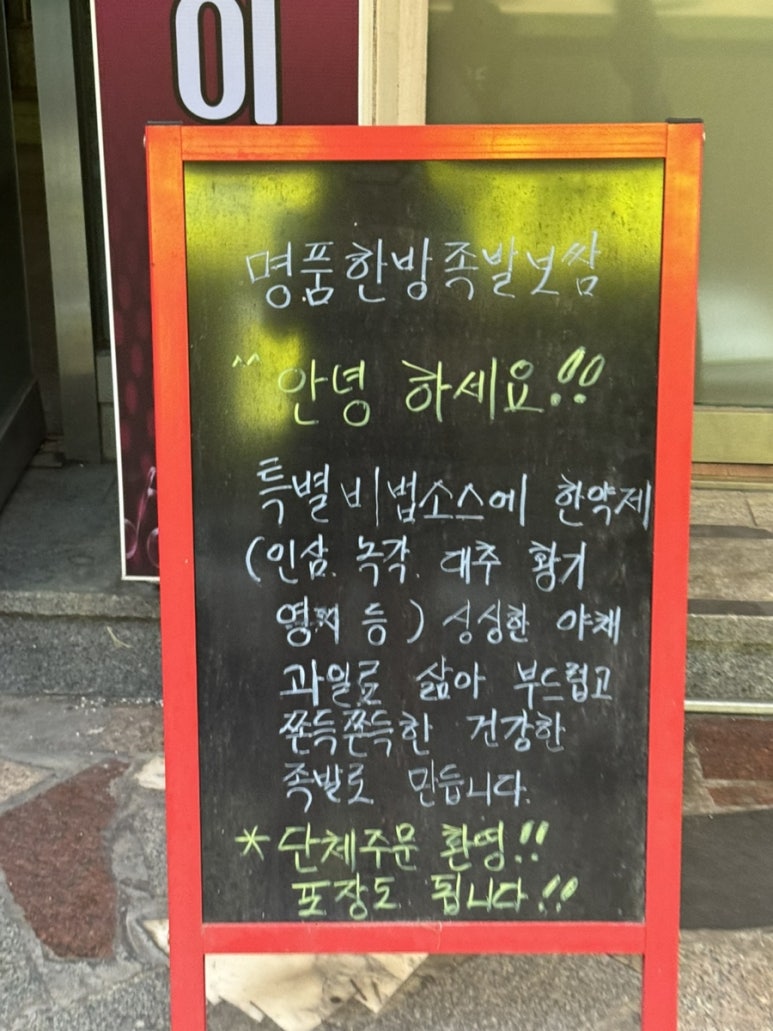 이
명품한방족발보쌈
^^ 안녕 하세요!!
특별비법소스에 한약제
(인삼. 녹각. 대추 황기
영지 등) 싱싱한 야채
과일로 삶아 부드럽고
쫀득쫀득한 건강한
족발로 만듭니다.
* 단체주문 환영!!
포장도 됩니다!!